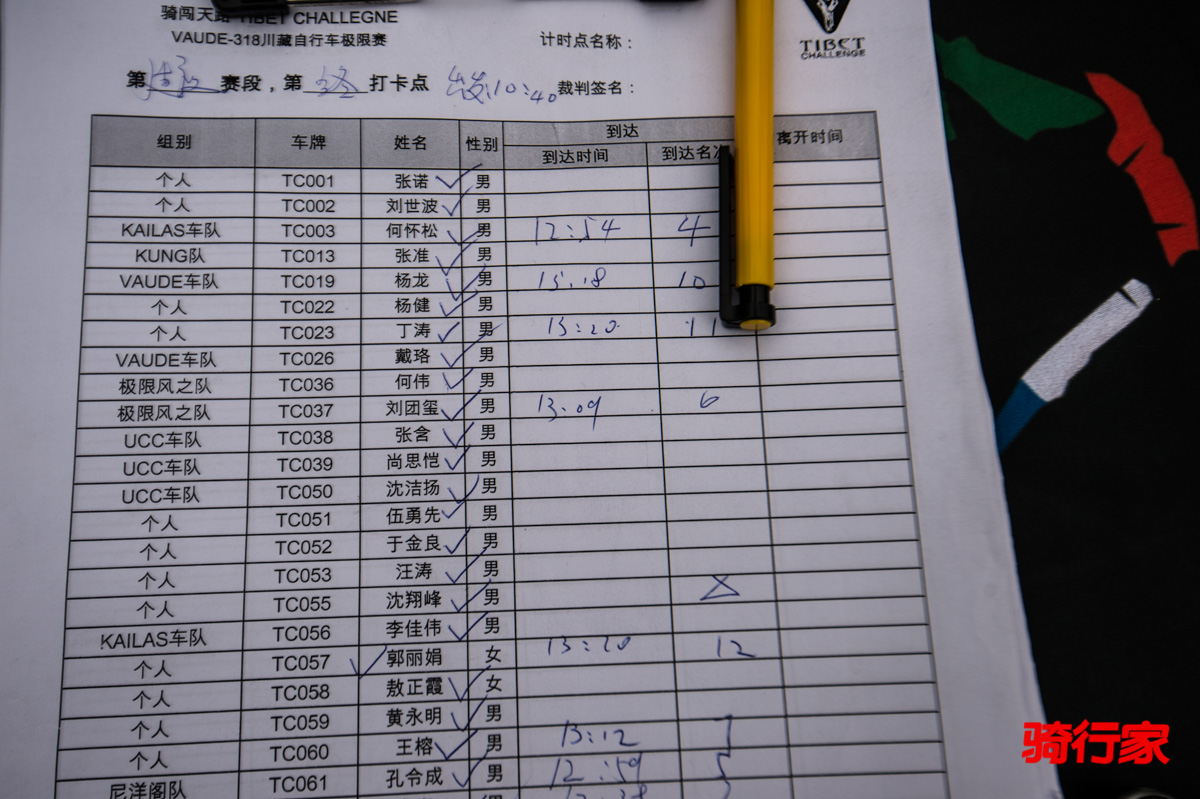 骑闯天路 TIBET CHALLEGNE
VAUDE-318川藏自行车极限赛
计时点名称：
TIBET
CHALLENGE
第 赛段，第 终 打卡点 出发10:40 裁判签名：
组别 车牌 姓名 性别 到达 离开时间
到达时间 到达名次
个人 TC001 张诺 ✓ 男
个人 TC002 刘世波 ✓ 男
KAILAS车队 TC003 何怀松 ✓ 男 12:54 4
KUNG队 TC013 张准 ✓ 男
VAUDE车队 TC019 杨龙 ✓ 男 13:18 10
个人 TC022 杨健 ✓ 男
个人 TC023 丁涛 ✓ 男 13:20 11
VAUDE车队 TC026 戴珞 ✓ 男
极限风之队 TC036 何伟 ✓ 男
极限风之队 TC037 刘团玺 ✓ 男 13:09 6
UCC车队 TC038 张含 ✓ 男
UCC车队 TC039 尚思恺 ✓ 男
UCC车队 TC050 沈洁扬 ✓ 男
个人 TC051 伍勇先 ✓ 男
个人 TC052 于金良 ✓ 男
个人 TC053 汪涛 ✓ 男
个人 TC055 沈翔峰 ✓ 男
KAILAS车队 TC056 李佳伟 ✓ 男
个人 TC057 ✓ 郭丽娟 女 13:20 12
个人 TC058 敖正霞 ✓ 女
个人 TC059 黄永明 ✓ 男
个人 TC060 王榕 ✓ 男 13:12 7
尼洋阁队 TC061 孔令成 ✓ 男 12:59 5
骑行家